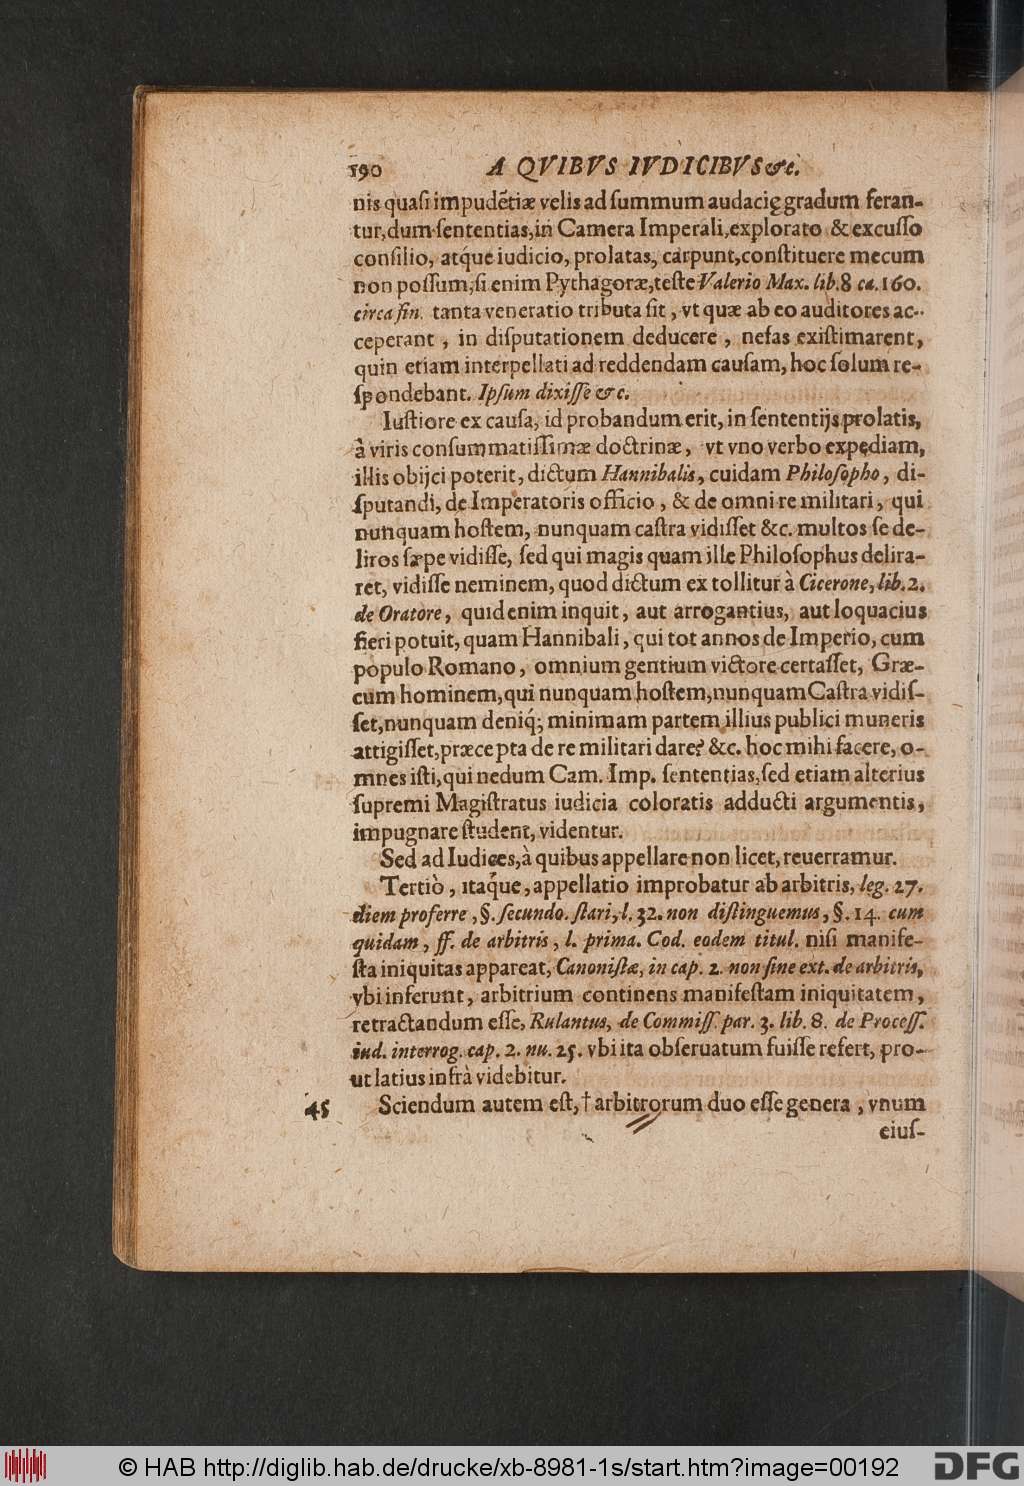 190 A QVIBVS IVDICIBVS &c.
nis quaſi impudētiæ velis ad ſummum audacię gradum feran-
tur, dum ſententias, in Camera Imperali, explorato & excuſſo
conſilio, atq́ue iudicio, prolatas, carpunt, conſtituere mecum
non poſſum, ſi enim Pythagoræ, teſte Valerio Max. lib. 8 ca. 160.
circa fin. tanta veneratio tributa ſit, vt quæ ab eo auditores ac-
ceperant, in diſputationem deducere, nefas exiſtimarent,
quin etiam interpellati ad reddendam cauſam, hoc ſolum re-
ſpondebant. Ipſum dixiſſe &c.
Iuſtiore ex cauſa, id probandum erit, in ſententijs prolatis,
à viris conſummatiſſimæ doctrinæ, vt vno verbo expędiam,
illis obijci poterit, dictum Hannibalis, cuidam Philoſopho, di-
ſputandi, de Imperatoris officio, & de omni re militari, qui
nunquam hoſtem, nunquam caſtra vidiſſet &c. multos ſe de-
liros ſæpe vidiſſe, ſed qui magis quam ille Philoſophus delira-
ret, vidiſſe neminem, quod dictum ex tollitur à Cicerone, lib. 2.
de Oratore, quid enim inquit, aut arrogantius, aut loquacius
fieri potuit, quam Hannibali, qui tot annos de Imperio, cum
populo Romano, omnium gentium victore certaſſet, Græ-
cum hominem, qui nunquam hoſtem, nunquam Caſtra vidiſ-
ſet, nunquam deniq́; minimam partem illius publici muneris
attigiſſet, præcepta de re militari dare? &c. hoc mihi facere, o-
mnes iſti, qui nedum Cam. Imp. ſententias, ſed etiam alterius
ſupremi Magiſtratus iudicia coloratis adducti argumentis,
impugnare ſtudent, videntur.
Sed ad Iudices, à quibus appellare non licet, reuerramur.
Tertiò, itaq́ue, appellatio improbatur ab arbitris, leg. 27.
diem proferre, §. ſecundo. ſtari, l. 32. non diſtinguemus, §. 14. cum
quidam, ff. de arbitris, l. prima. Cod. eodem titul. niſi manife-
ſta iniquitas appareat, Canoniſtæ, in cap. 2. non ſine ext. de arbitris,
vbi inferunt, arbitrium continens manifeſtam iniquitatem,
retractandum eſſe, Rulantus, de Commiſſ. par. 3. lib. 8. de Proceſſ.
iud. interrog. cap. 2. nu. 25. vbi ita obſeruatum fuiſſe refert, pro-
ut latius infrà videbitur.
45 Sciendum autem eſt, † arbitrorum duo eſſe genera, vnum
eiuſ-
© HAB http://diglib.hab.de/drucke/xb-8981-1s/start.htm?image=00192
DFG